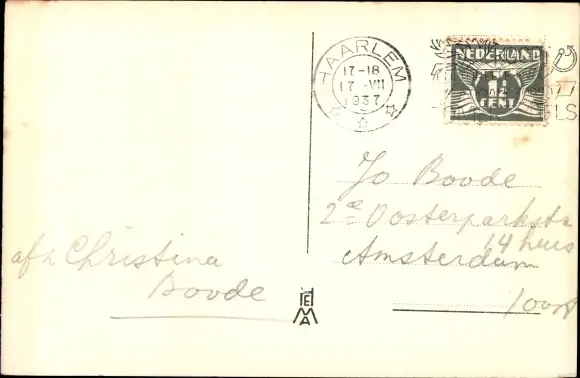 HAARLEM
17-18
17 VII
1937
NEDERLAND
1½
CENT
Jo Boode
2e Oosterparkstr
14 huis
Amsterdam
Oost
afz Christina
Boode